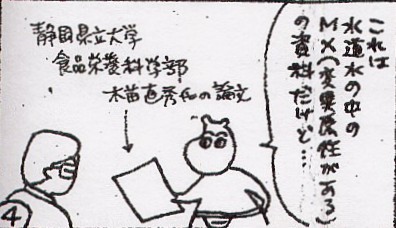 これは
水道水の中の
MX(変異原性がある)
の資料だけど…
静岡県立大学
食品栄養科学部
木苗直秀氏の論文
4